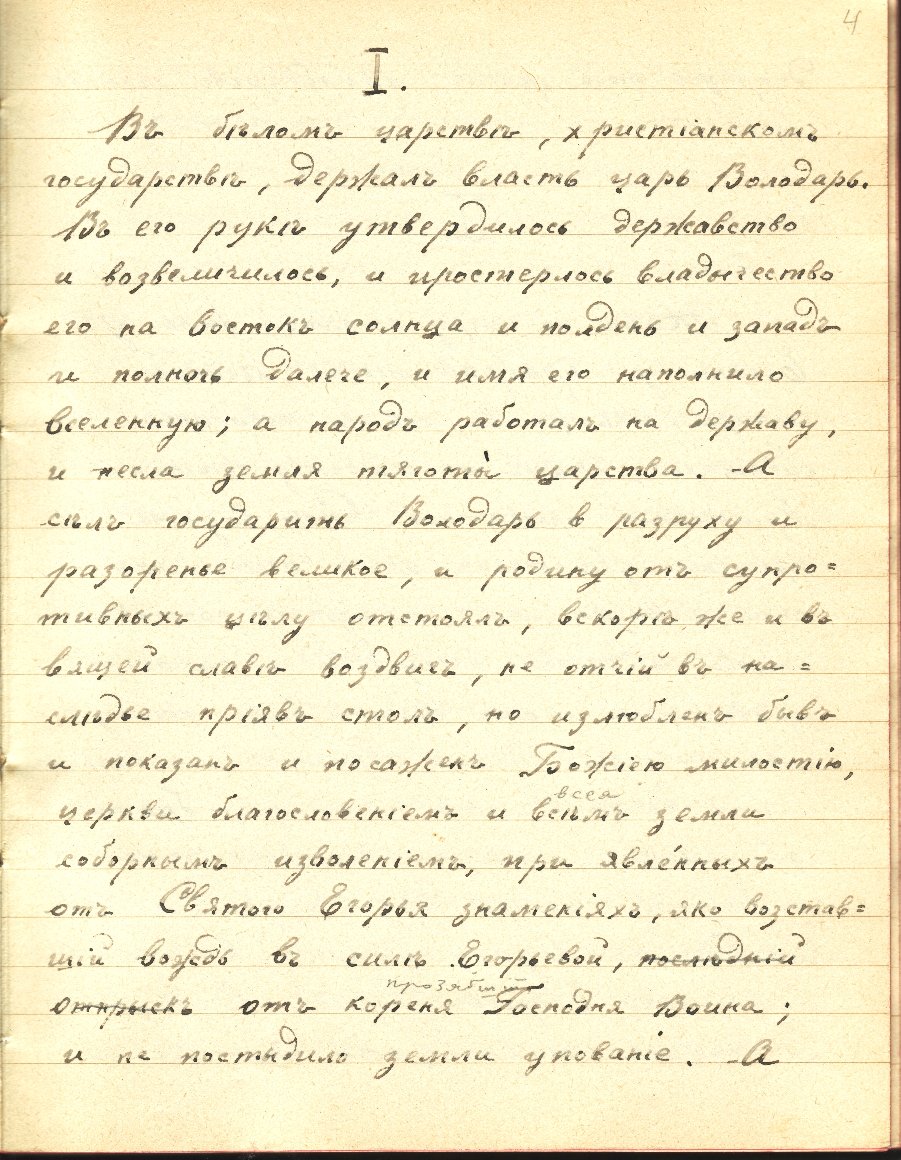 4
I.
Въ бѣломъ царствѣ, христіанскомъ
государствѣ, держалъ власть царь Володарь.
Въ его рукѣ утвердилось державство
и возвеличилось, и простерлось владычество
его на востокъ солнца и полдень и западъ
и полночь далече, и имя его наполнило
вселенную; а народъ работалъ на державу,
и несла земля тяготы̀ царства. – А
сѣлъ государить Володарь в разруху и
разоренье великое, и родину отъ супро=
тивныхъ цѣлу отстоялъ, вскорѣ же и въ
вящей славѣ воздвигъ, не отчій въ на=
слѣдье пріявъ столъ, но излюбленъ бывъ
и показанъ и посаженъ Божіею милостію,
всея
церкви благословеніемъ и всѣмъ земли
соборнымъ изволеніемъ, при явле́нныхъ
отъ Святого Егорья знаменіяхъ, яко возстав=
шій вождь въ силѣ Егорьевой, послѣдній
прозябшій
отпрыскъ отъ кореня Господня Воина;
и не постыдило земли упованіе. – А